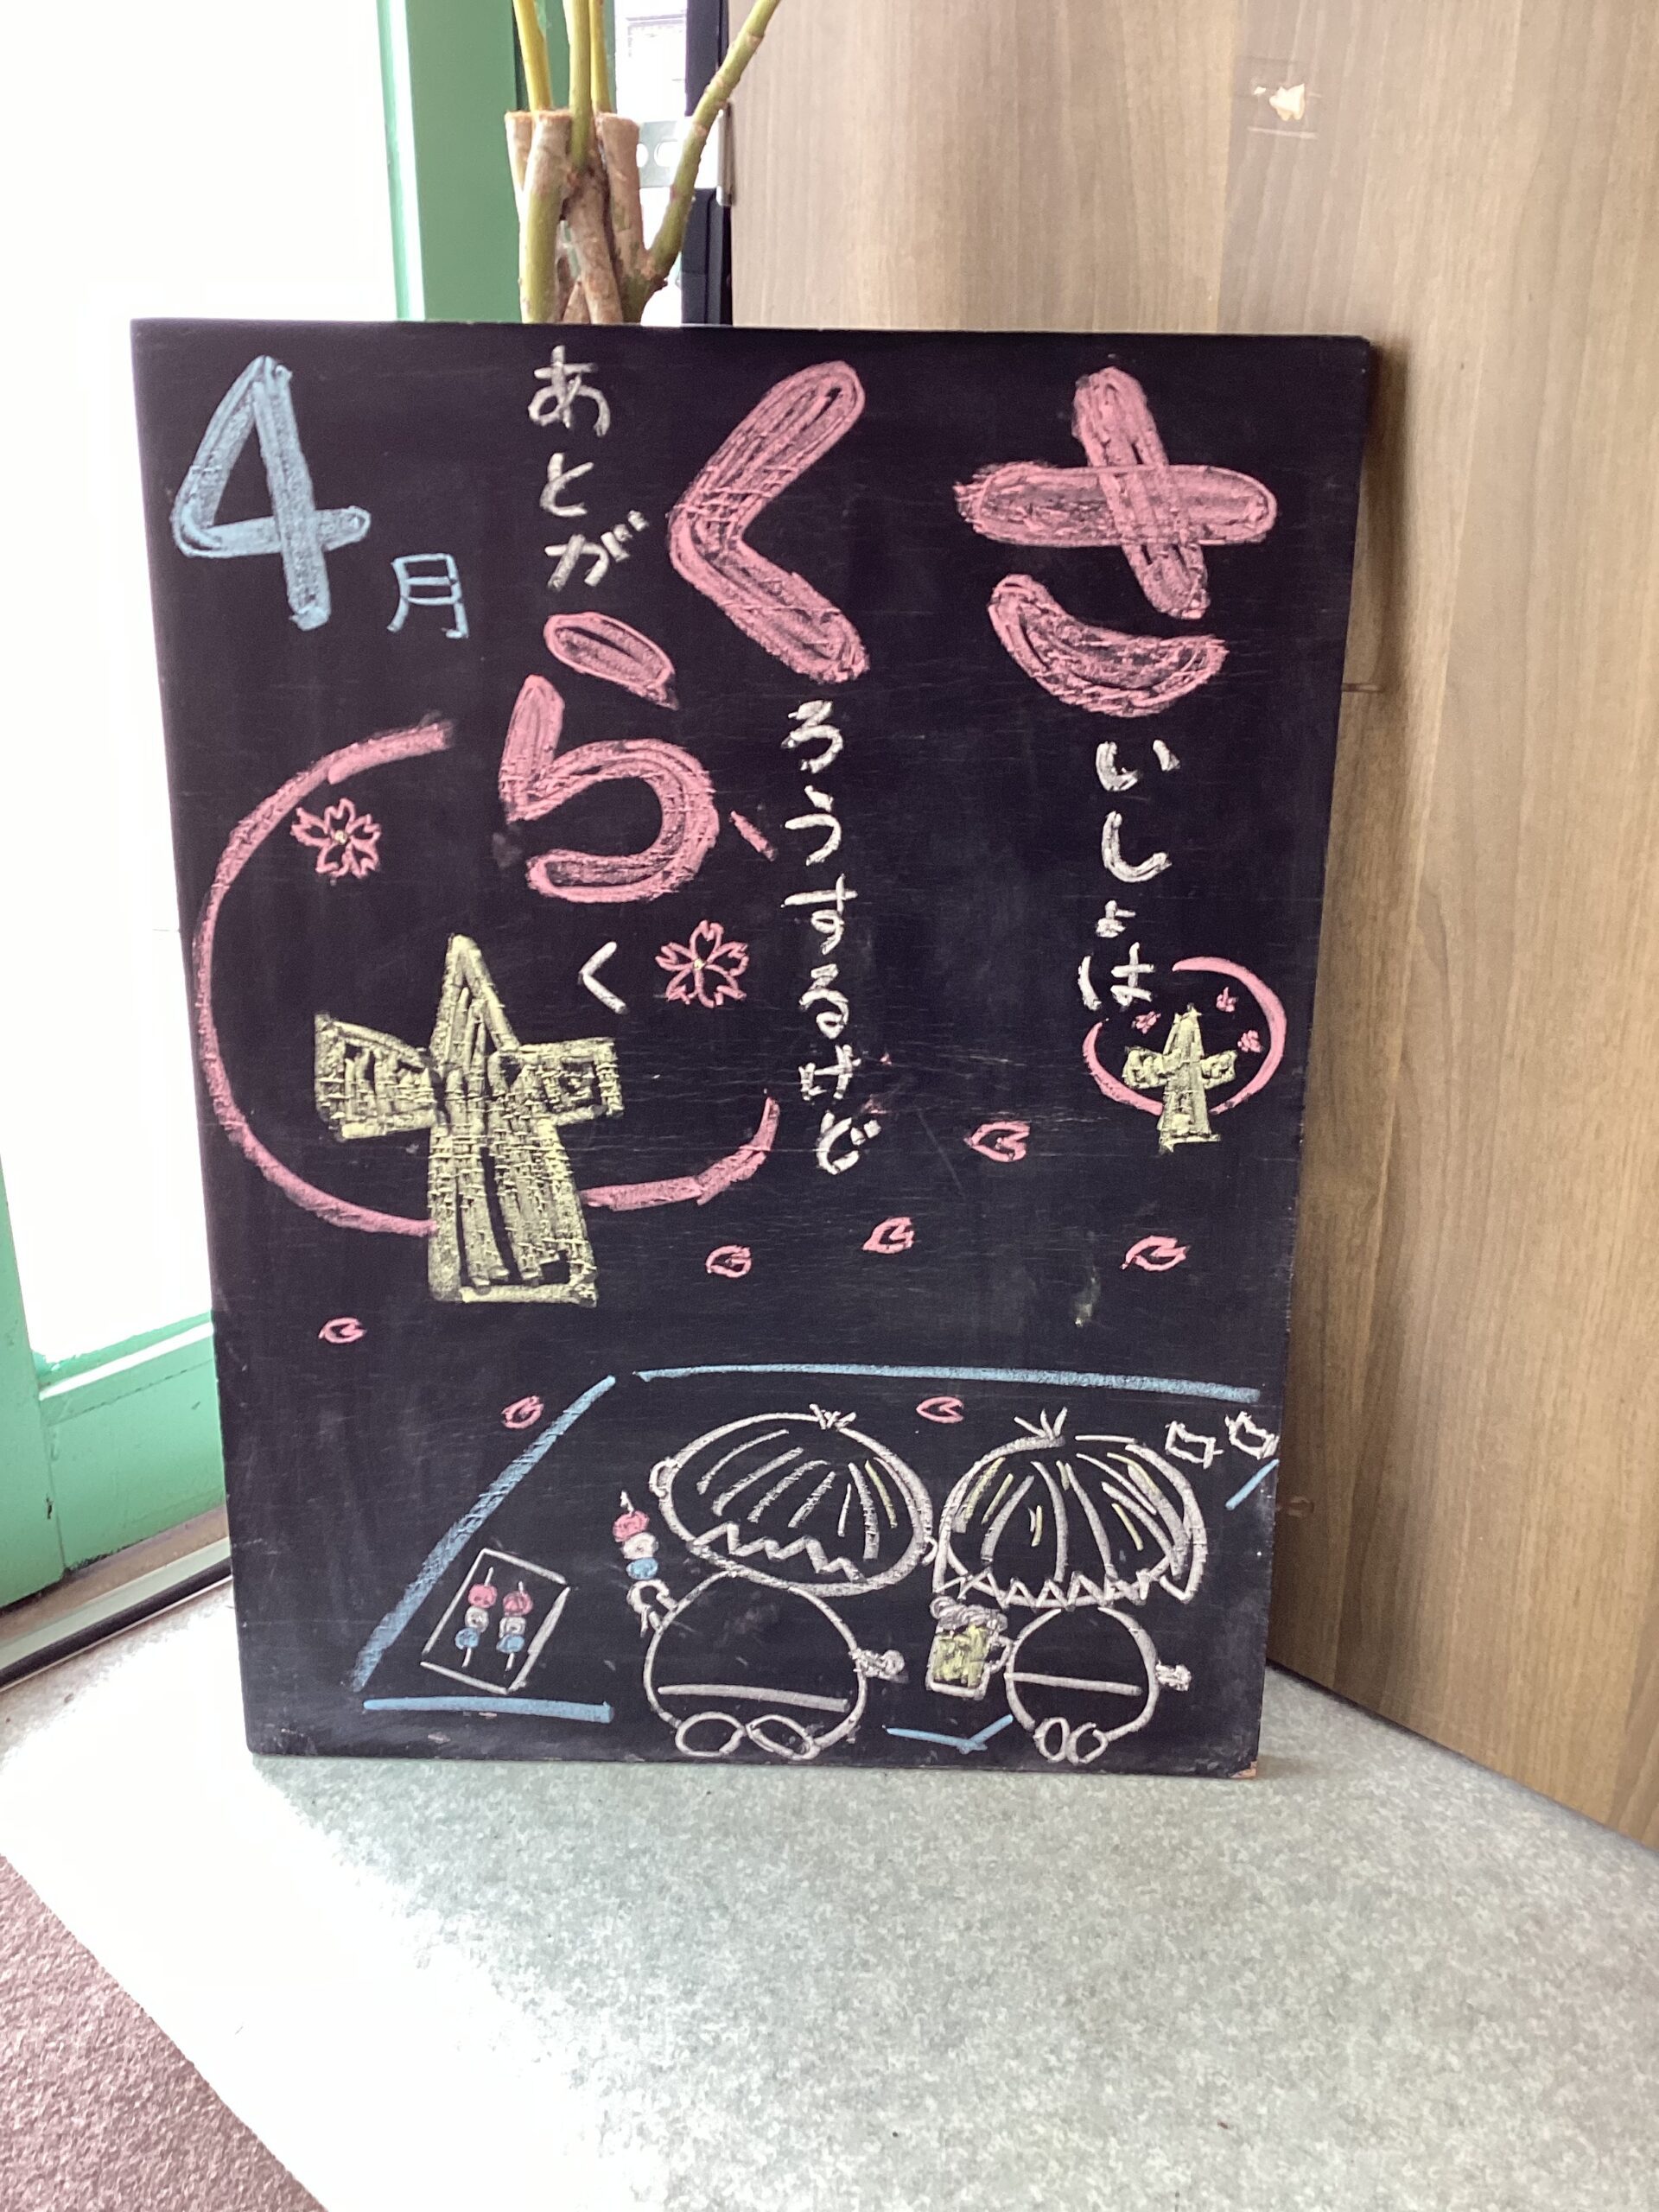 さいしょは
くろうするけど
あとがらく
4月